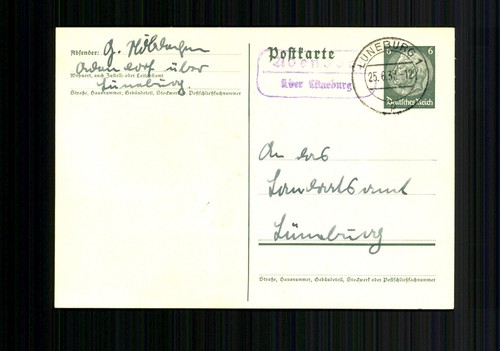 Absender: G.
über
Wohnort, auch Zustell- oder Leitpostamt
Lüneburg.
Straße, Hausnummer, Gebäudeteil, Stockwerk od. Postschließfachnummer
Postkarte
über Lüneburg
LÜNEBURG 1
25.6.3
6 6
Deutsches Reich
An das
Landratsamt
Lüneburg
Straße, Hausnummer, Gebäudeteil, Stockwerk oder Postschließfachnummer